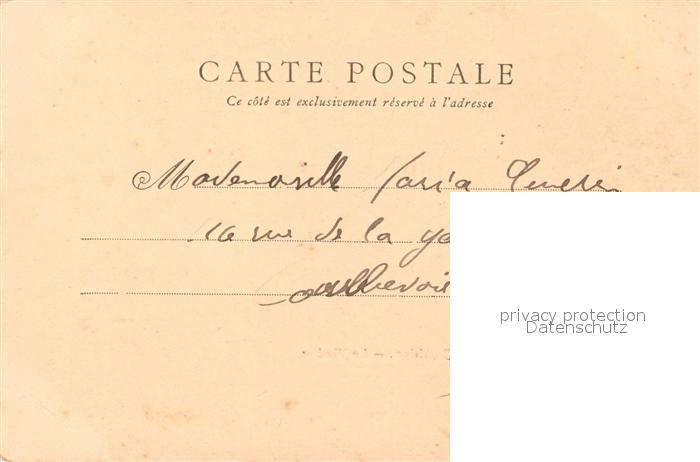 CARTE POSTALE
Ce côté est exclusivement réservé à l'adresse
Mademoiselle Maria
16 rue de la
Courbevoie
privacy protection
Datenschutz